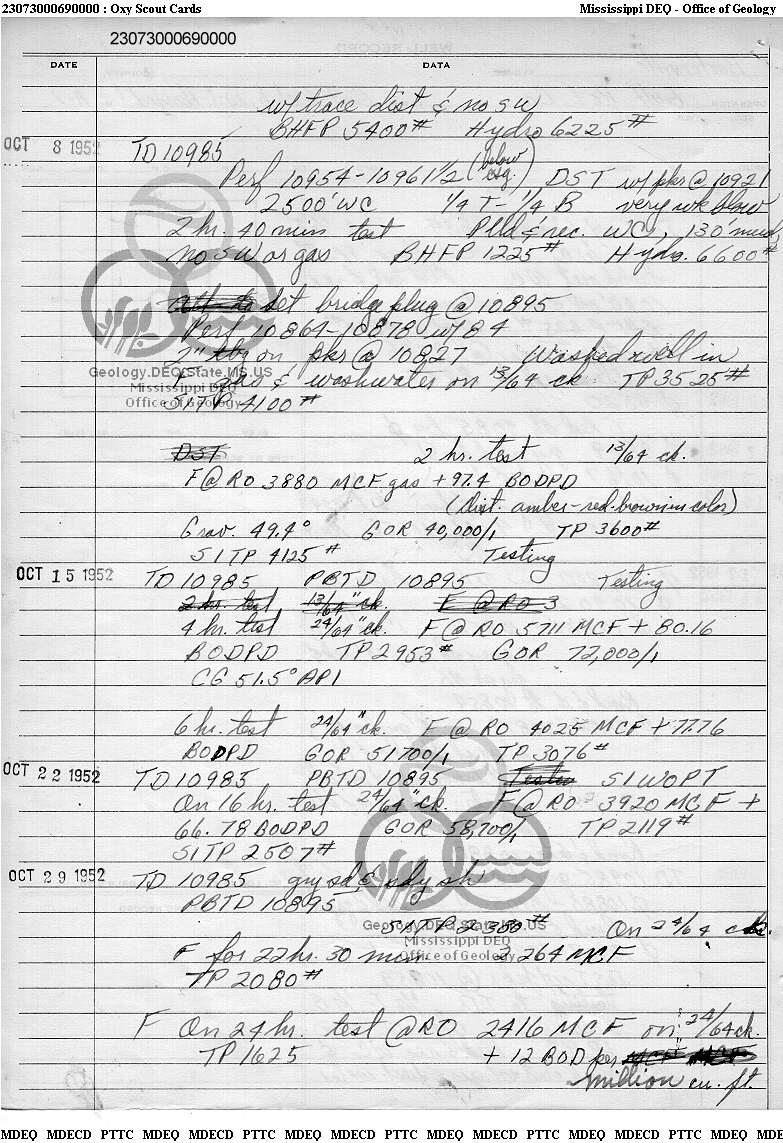 23073000690000 : Oxy Scout Cards Mississippi DEQ - Office of Geology
23073000690000
DATE DATA
w/ trace dist & no SW
BHFP 5400# Hydro 6225#
OCT 8 1952 TD 10985
Perf 10954-10961 1/2 (below csg.) DST w/ pkr @ 10921
2500' WC 1/4 T - 1/4 B very wk blow
2 hr. 40 min test Plld & rec. WC, 130' mud,
no SW or gas BHFP 1225# Hydro. 6600#
Set bridge plug @ 10895
Perf 10864-10878 w/ 84
2" tbg on pkr @ 10827 Washed well in
Geology.DEQ.State.MS.US
F gas & washwater on 13/64 ck TP 3525#
Mississippi DEQ
Office of Geology
SITP 4100#
DST 2 hr. test 13/64 ck.
F @ RO 3880 MCF gas + 97.4 BODPD
(Dist. amber-red-brown in color)
Grav. 49.4° GOR 40,000/1 TP 3600#
SITP 4125# Testing
OCT 15 1952 TD 10985 PBTD 10895 Testing
2 hr. test 13/64" ck. F @ RO 3
4 hr. test 24/64" ck. F @ RO 5711 MCF + 80.16
BODPD TP 2953# GOR 72,000/1
CG 51.5° API
6 hr. test 24/64" ck. F @ RO 4025 MCF + 77.76
BODPD GOR 51700/1 TP 3076#
OCT 22 1952 TD 10985 PBTD 10895 SIWOPT
On 16 hr. test 24/64" ck. F @ RO 3920 MCF +
66.78 BODPD GOR 58,700/1 TP 2119#
SITP 2507#
OCT 29 1952 TD 10985 gry sd & sdy sh
PBTD 10895
Geology.DEQ.State.MS.US
SITP On 24/64 ck.
Mississippi DEQ
Office of Geology
F for 22 hr. 30 min. 3264 MCF
TP 2080#
F On 24 hr. test @ RO 2416 MCF on 24/64 ck.
TP 1625 + 12 BOD per
million cu. ft.
MDEQ MDECD PTTC MDEQ MDECD PTTC MDEQ MDECD PTTC MDEQ MDECD PTTC MDEQ MDECD PTTC MDEQ MDECD PTTC MDEQ MD